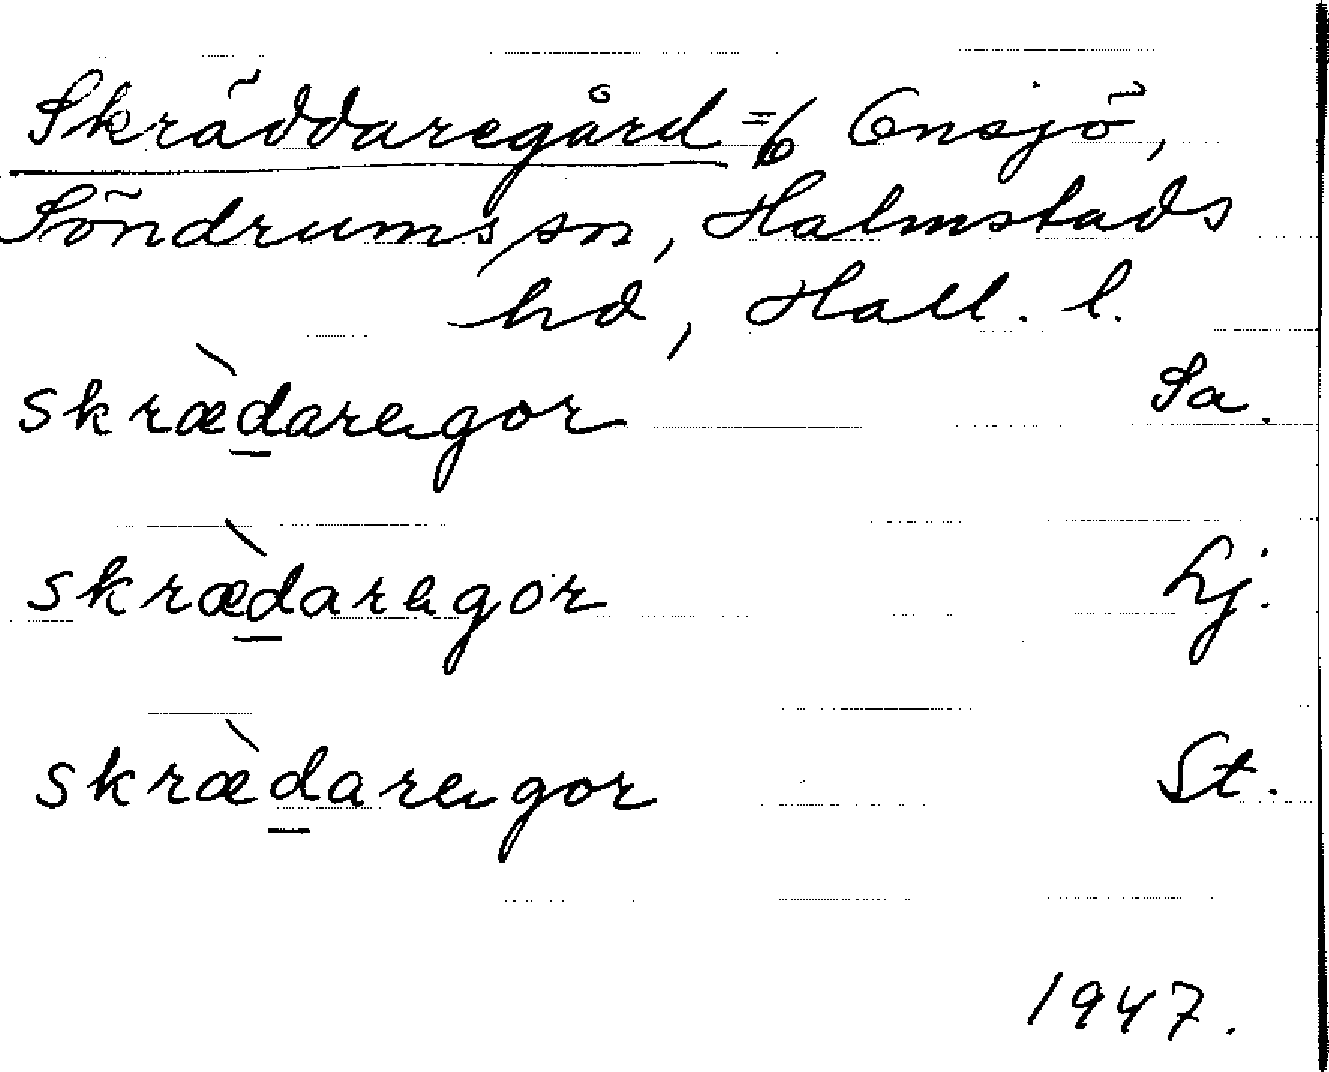 Skräddaregård = 6 Ensjö,
Söndrums sn, Halmstads
hd, Hall. l.
skræ̀daragor Sa.
skræ̀daragor Lj.
skræ̀daragor St.
1947.